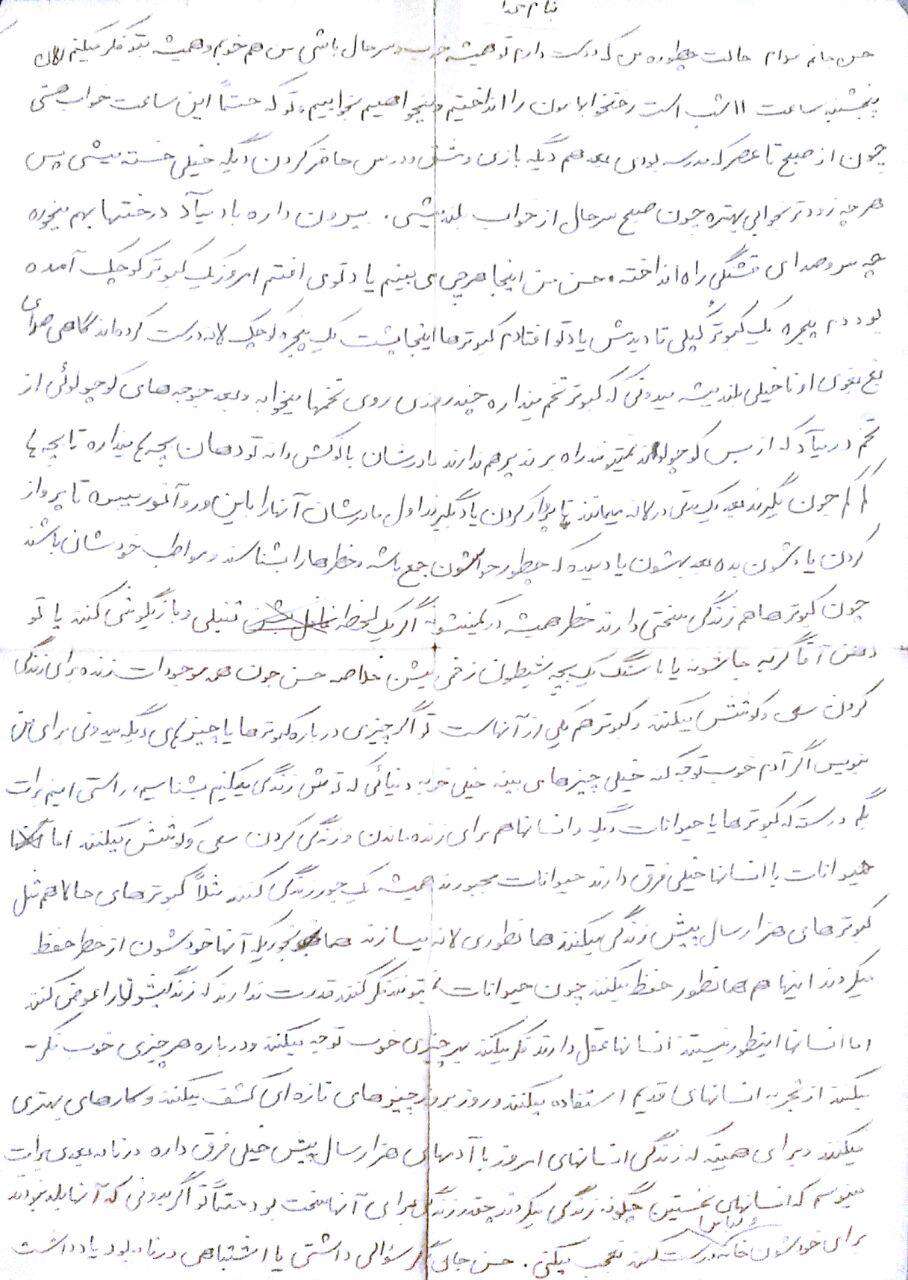 بنام خدا
حسن جانم سلام حالت چطوره من که دوست دارم تو همیشه خوب و سرحال باشی من هم خوبم و همیشه بتو فکر میکنم الان
پنجشنبه ساعت ۱۱ شب است رختخوابامون را انداختیم و میخواهیم بخوابیم، تو که حتماً این ساعت خواب هستی
چون از صبح تا عصر که مدرسه بودی بعد هم دیگه بازی و مشق و درس حاضر کردن دیگه خیلی خسته میشی پس
هر چه زودتر بخوابی بهتره چون صبح سرحال از خواب بلند میشی. بیرون داره باد میآد درختها بهم میخوره
چه سر و صدای قشنگی راه انداخته، حسن من اینجا هرچی می بینم یاد توی افتم امروز یک کبوتر کوچک آمده
بود دم پنجره یک کبوتر گپلی تا دیدمش یاد تو افتادم کبوترها اینجا پشت یک پنجره کوچک لانه درست کرده‌اند گاهی صدای
بغ بغوی اونا خیلی بلند میشه میدونی که کبوتر تخم میذاره چند روزی روی تخمها میخوابه و بعد جوجه های کوچولوئی از
تخم در میآد که از بس کوچولوند نمیتونند راه برند پر هم ندارند مادرشان با نوکش دانه تو دهان بچه ها میذاره تا بچه ها
کم کم جون بگیرند بعد یک مدتی در لانه میمانند تا پرواز کردن یاد بگیرند اول مادرشان آنها را باین ور و آنور میبره تا پرواز
کردن یادشون بده بعد بهشون یاد میده که چطور حواسشون جمع باشه و خطرها را بشناسند و مواظب خودشان باشند
چون کبوترها هم زندگی سختی دارند خطر همیشه در کمینشونه اگر یک لحظه تنبلی و بازیگوشی کنند یا تو
دهن آقا گربه جاشونه یا با سنگ یک بچه شیطون زخمی میشن خلاصه حسن جون همه موجودات زنده برای زندگی
کردن سعی و کوشش میکنند و کبوتر هم یکی از آنهاست تو اگر چیزی درباره کبوترها یا چیزهای دیگه میدونی برای من
بنویس اگر آدم خوب توجه کنه خیلی چیزهای بینه خیلی خوبه دنیائی که توش زندگی میکنیم بشناسیم، راستی اینم برات
بگم درسته که کبوترها یا حیوانات دیگه و انسانها هم برای زنده ماندن و زندگی کردن سعی و کوشش میکنند اما
حیوانات با انسانها خیلی فرق دارند حیوانات مجبورند همیشه یک جور زندگی کنند مثلاً کبوترهای حالا هم مثل
کبوترهای هزار سال پیش زندگی میکنند همانطوری لانه میسازند همانجوریکه آنها خودشون از خطر حفظ
میکردند اینها هم همانطور حفظ میکنند چون حیوانات نمیتونند فکر کنند قدرت ندارند که زندگیشونو را عوض کنند
اما انسانها اینطور نیستند انسانها عقل دارند فکر میکنند بهر چیزی خوب توجه میکنند و درباره هر چیزی خوب فکر
میکنند از تجربه انسانهای قدیم استفاده میکنند و روز بروز چیزهای تازه ای کشف میکنند و کارهای بهتری
میکنند و برای همینه که زندگی انسانهای امروز با آدمهای هزار سال پیش خیلی فرق داره در نامه بعدی برات
مینویسم که انسانهای نخستین چگونه زندگی میکردند چقدر زندگی برای آنها سخت بود حتماً تو اگر بدونی که آنها بلد نبودند
برای خودشون خانه و لباس درست کنند تعجب میکنی. حسن جان اگر سؤالی داشتی یا اشتباهی در نامه بود یادداشت